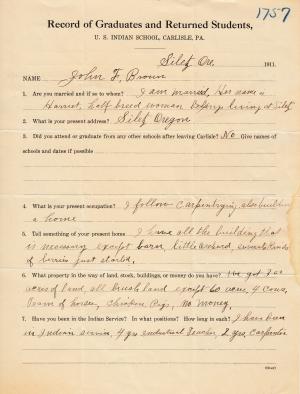 1757
Record of Graduates and Returned Students,
U. S. INDIAN SCHOOL, CARLISLE, PA.
Siletz Ore. 1911.
NAME John F. Brown
1. Are you married and if so to whom? I am married, Her name is
Harriet, half breed woman living at Siletz
2. What is your present address? Siletz Oregon
3. Did you attend or graduate from any other schools after leaving Carlisle? No Give names of
schools and dates if possible
4. What is your present occupation? I follow carpentrying, also building
a home
5. Tell something of your present home I have all the building that
is necessary except barn, little orchard, several kinds
of berries just started.
6. What property in the way of land, stock, buildings, or money do you have? We got
acres of land, all brush land except 60 acres, 4 cows,
Team of horses, chicken, Pigs, No money.
7. Have you been in the Indian Service? In what positions? How long in each? I have been
in Indian service, 4 yrs industrial Teacher, 2 yrs, Carpenter